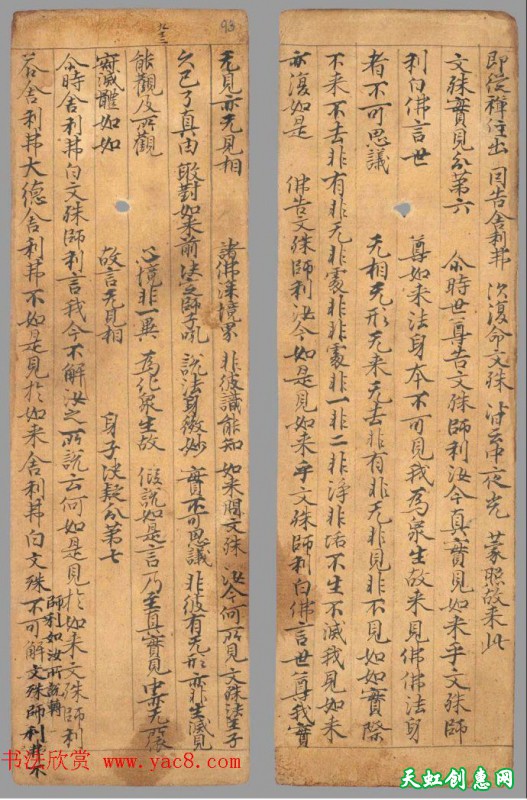 即從禪住出 因告舍利弗 次復命文殊 中夜光 蒙照故来此
文殊實見分第六 尒時世尊告文殊師利汝今真實見如来乎文殊師
利白佛言世尊如来法身本不可見我為衆生故来見佛佛法身
者不可思議无相无形无来无去非有非无非見非不見如如實際
不来不去非有非无非處非非處非一非二非淨非垢不生不滅我見如来
亦復如是 佛告文殊師利汝今如是見如来乎文殊師利白佛言世尊我實
93
九三
无見亦无見相 諸佛深境界 非彼識能知 如来問文殊 汝今何所見 文殊法王子
久已了真由 敢對如来前 法之師子吼 說法身微妙 實不可思議 非彼有无形 亦非生滅見
能觀及所觀 心境非一異 為化衆生故 假說如是言 乃至真實見 中亦无
寂滅體如如 故言无見相 身子決疑分第七
尒時舍利弗白文殊師利言我今不解汝之所說云何如是見於如来文殊師利
答舍利弗大德舍利弗不如是見於如来舍利弗白文殊師利如汝所說轉不可解文殊師利
书法欣赏
www.yac8.com
天虹创惠网